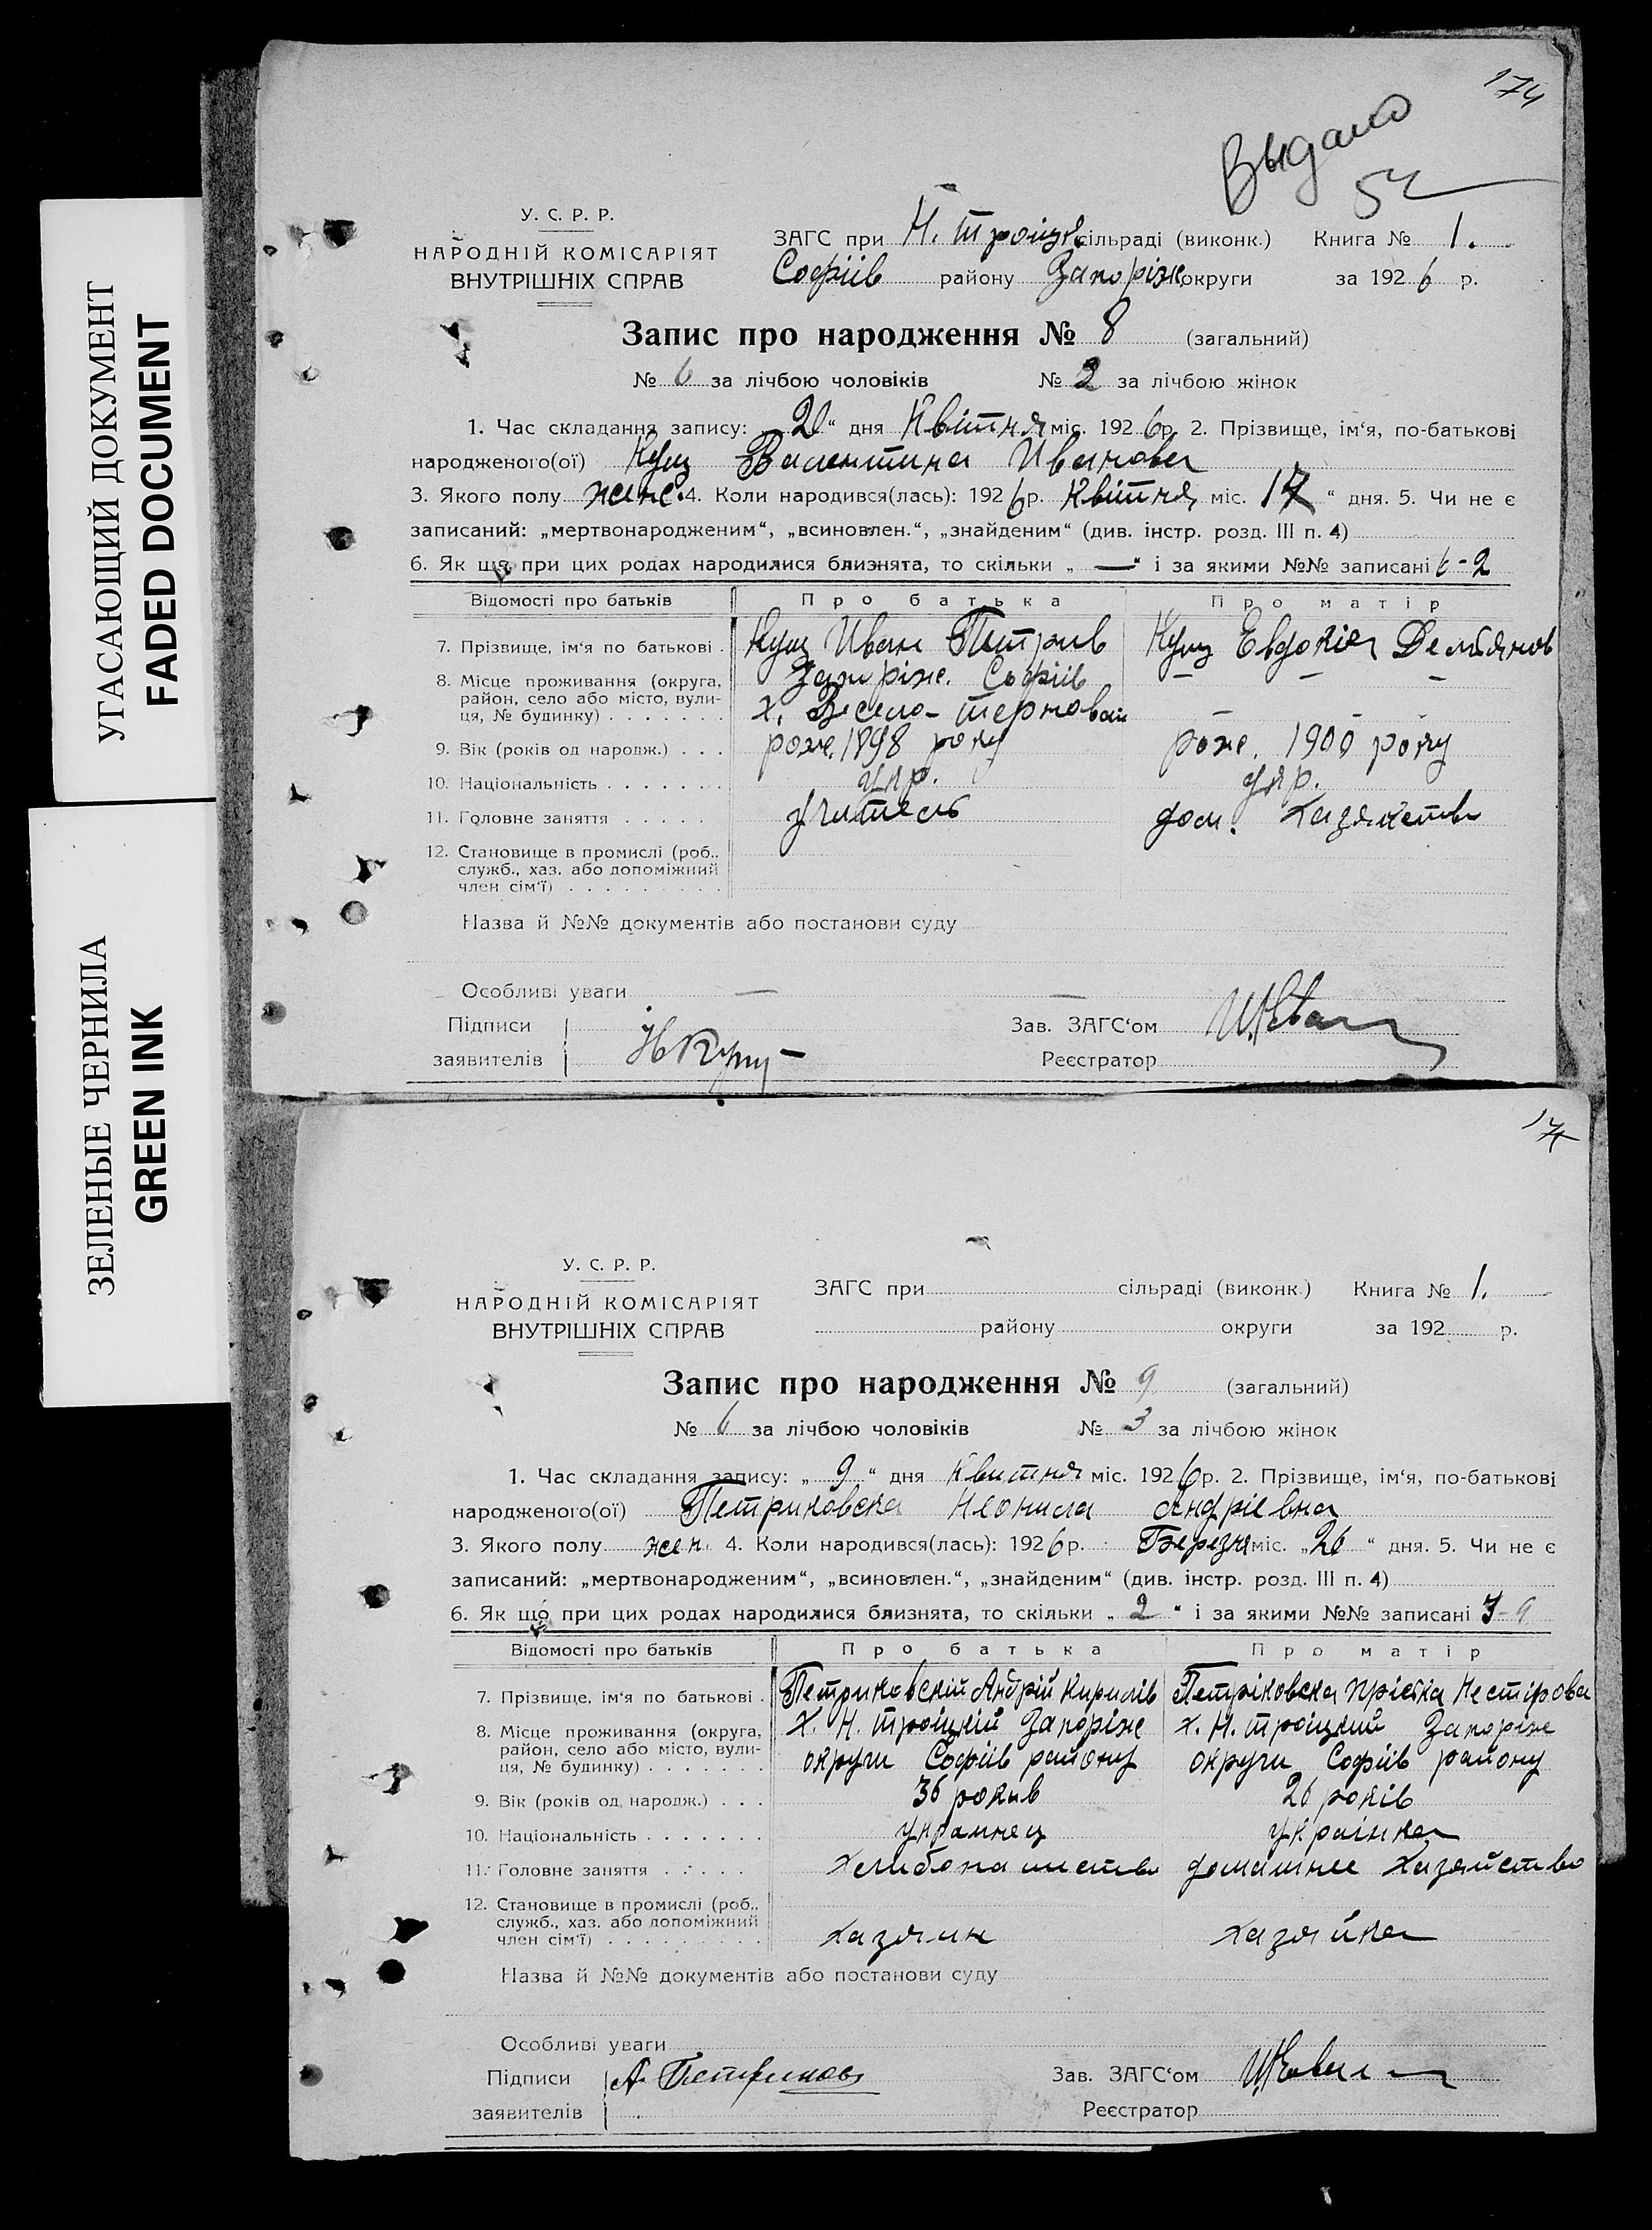 УГАСАЮЩИЙ ДОКУМЕНТ
FADED DOCUMENT
ЗЕЛЕНЫЕ ЧЕРНИЛА
GREEN INK
174
Выдано
54
У. С. Р. Р.
НАРОДНІЙ КОМІСАРІЯТ
ВНУТРІШНІХ СПРАВ
ЗАГС при Н. Троіцк. сільраді (виконк.) Книга № 1.
Софіів району Запоріж. округи за 1926 р.
Запис про народження № 8 (загальний)
№ 6 за лічбою чоловіків № 2 за лічбою жінок
1. Час складання запису: 20“ дня Квітня міс. 1926р. 2. Прізвище, ім‘я, по-батькові
народженого(ої) Кущ Валентина Иванова
3. Якого полу женс. 4. Коли народився(лась): 1926р. Квітня міс. 17 “ дня. 5. Чи не є
записаний: „мертвонародженим“, „всиновлен.“, „знайденим“ (див. інстр. розд. III п. 4)
6. Як що при цих родах народилися близнята, то скільки „ — “ і за якими №№ записані 6-2
Відомості про батьків Про батька Про матір
7. Прізвище, ім‘я по батькові . Кущ Иван Петрив Кущ Евдокія Демьянов
8. Місце проживання (округа, район, село або місто, вули-ця, № будинку) . . . . . . . Запоріж. Софіів — — —
х. Весело-Терноват — — — —
9. Вік (років од народж.) . . . рож. 1898 року рож. 1900 року
10. Національність . . . . . . . укр. укр.
11. Головне заняття . . . . . учитель дом. хазяйств
12. Становище в промислі (роб.,
служб., хаз. або допоміжний
член сім‘ї) . . . . . . . . .
Назва й №№ документів або постанови суду
Особливі уваги — —
Підписи Зав. ЗАГС‘ом
заявителів Реєстратор
У. С. Р. Р.
НАРОДНІЙ КОМІСАРІЯТ
ВНУТРІШНІХ СПРАВ
ЗАГС при сільраді (виконк.) Книга № 1.
району округи за 192 р.
Запис про народження № 9 (загальний)
№ 6 за лічбою чоловіків № 3 за лічбою жінок
1. Час складання запису: „ 9 “ дня Квитня міс. 1926р. 2. Прізвище, ім‘я, по-батькові
народженого(ої) Петриковска Неонила Андріевна
3. Якого полу жен. 4. Коли народився(лась): 1926р. Березня міс. „26 “ дня. 5. Чи не є
записаний: „мертвонародженим“, „всиновлен.“, „знайденим“ (див. інстр. розд. III п. 4)
6. Як що при цих родах народилися близнята, то скільки „ 2 “ і за якими №№ записані 3-9
Відомості про батьків Про батька Про матір
7. Прізвище, ім‘я по батькові . Петриковскій Андрій Кирилів Петріковска Нестірова
8. Місце проживання (округа, х. Н. Троіцкій Запоріж х. Н. Троіцкий Запоріж
район, село або місто, вули-
ця, № будинку) . . . . . . . округи Софіів району округи Софіів району
9. Вік (років од народж.) . . . 36 років 26 років
10. Національність . . . . . . . украинец украінка
11. Головне заняття . . . . . хлибопашеств домашнее хазяйство
12. Становище в промислі (роб.,
служб., хаз. або допоміжний
член сім‘ї) . . . . . . . . . хазяин хазяйка
Назва й №№ документів або постанови суду
Особливі уваги
Підписи А. Петриков Зав. ЗАГС‘ом
заявителів Реєстратор